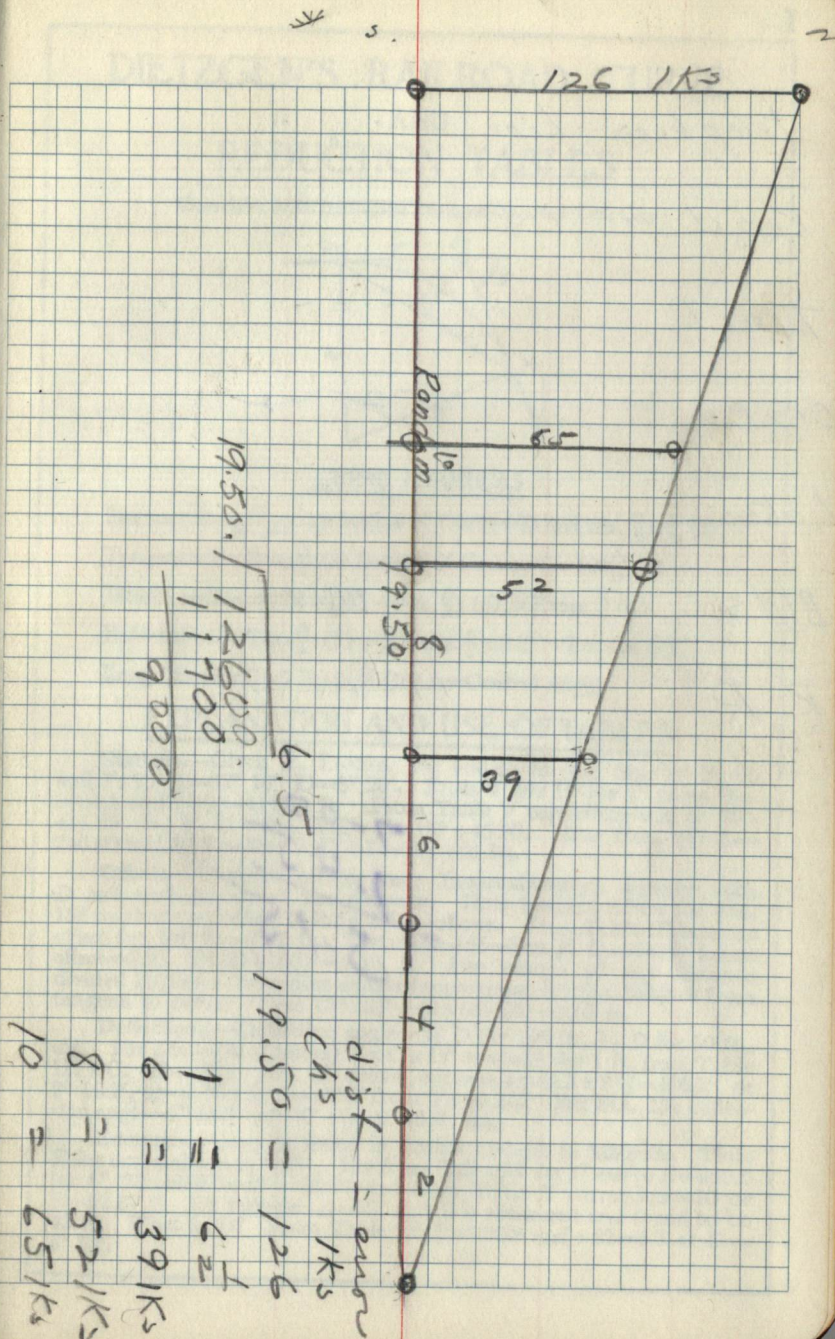 126 lks
65
52
39
Random
10
19.50
8
6
4
2
6.5
19.50 / 12600.
11700
9000
dist = error
chs lks
19.50 = 126
1 = 6½
6 = 39 lks
8 = 52 lks
10 = 65 lks